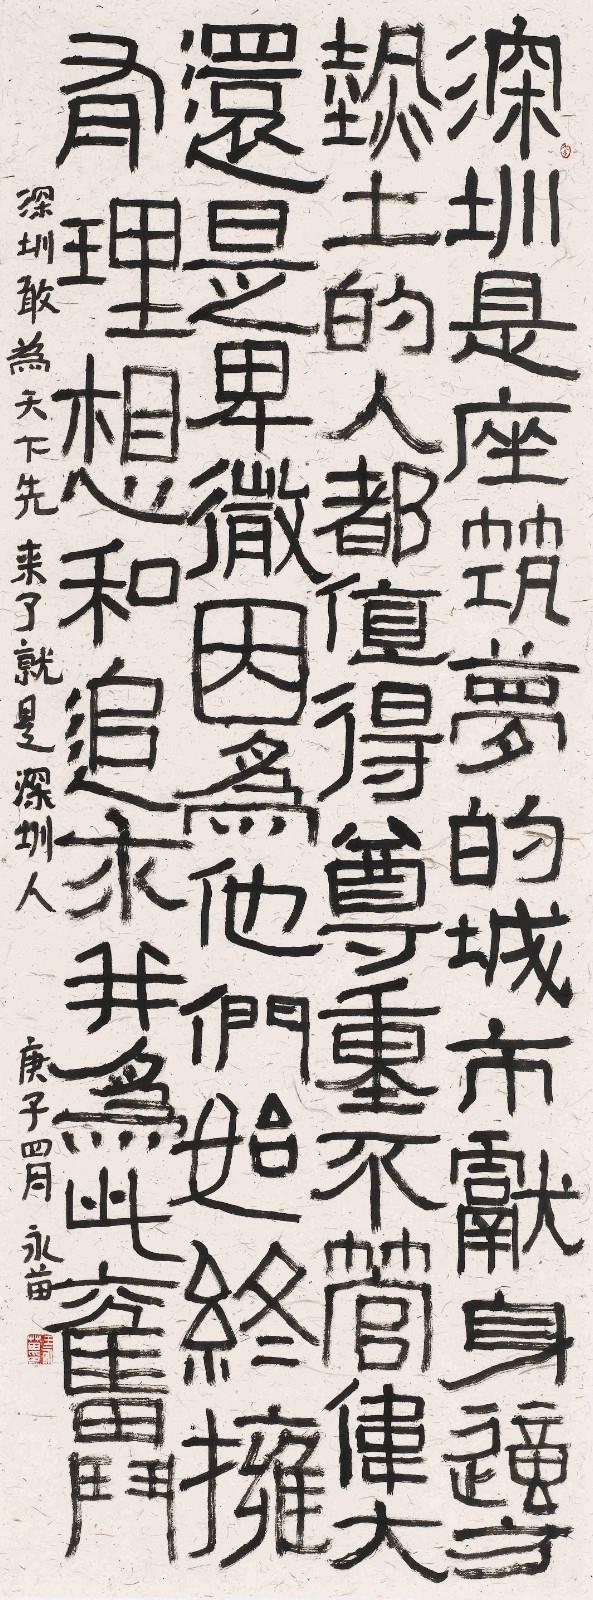 深圳是座筑夢的城市獻身這方
熱土的人都值得尊重不管偉大
還是卑微因為他們始終擁
有理想和追求并為此奮鬥
深圳敢為天下先 来了就是深圳人 庚子四月 永苗